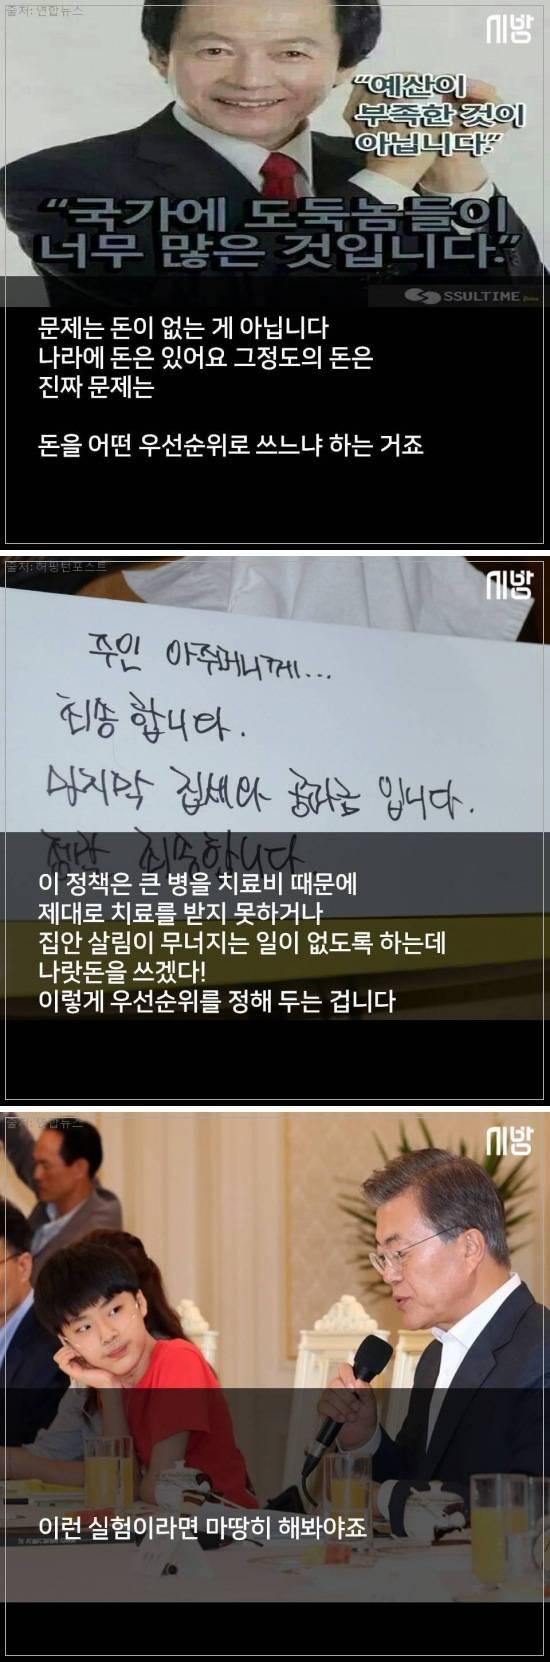 출처: 연합뉴스
시방
“예산이
부족한 것이
아닙니다.”
“국가에 도둑놈들이
너무 많은 것입니다.”
SSULTIME
문제는 돈이 없는 게 아닙니다
나라에 돈은 있어요 그정도의 돈은
진짜 문제는
돈을 어떤 우선순위로 쓰느냐 하는 거죠
출처: 허핑턴포스트
시방
주인 아주머니께...
죄송합니다.
마지막 집세와 공과금 입니다.
정말 죄송합니다
이 정책은 큰 병을 치료비 때문에
제대로 치료를 받지 못하거나
집안 살림이 무너지는 일이 없도록 하는데
나랏돈을 쓰겠다!
이렇게 우선순위를 정해 두는 겁니다
출처: 연합뉴스
시방
이런 실험이라면 마땅히 해봐야죠